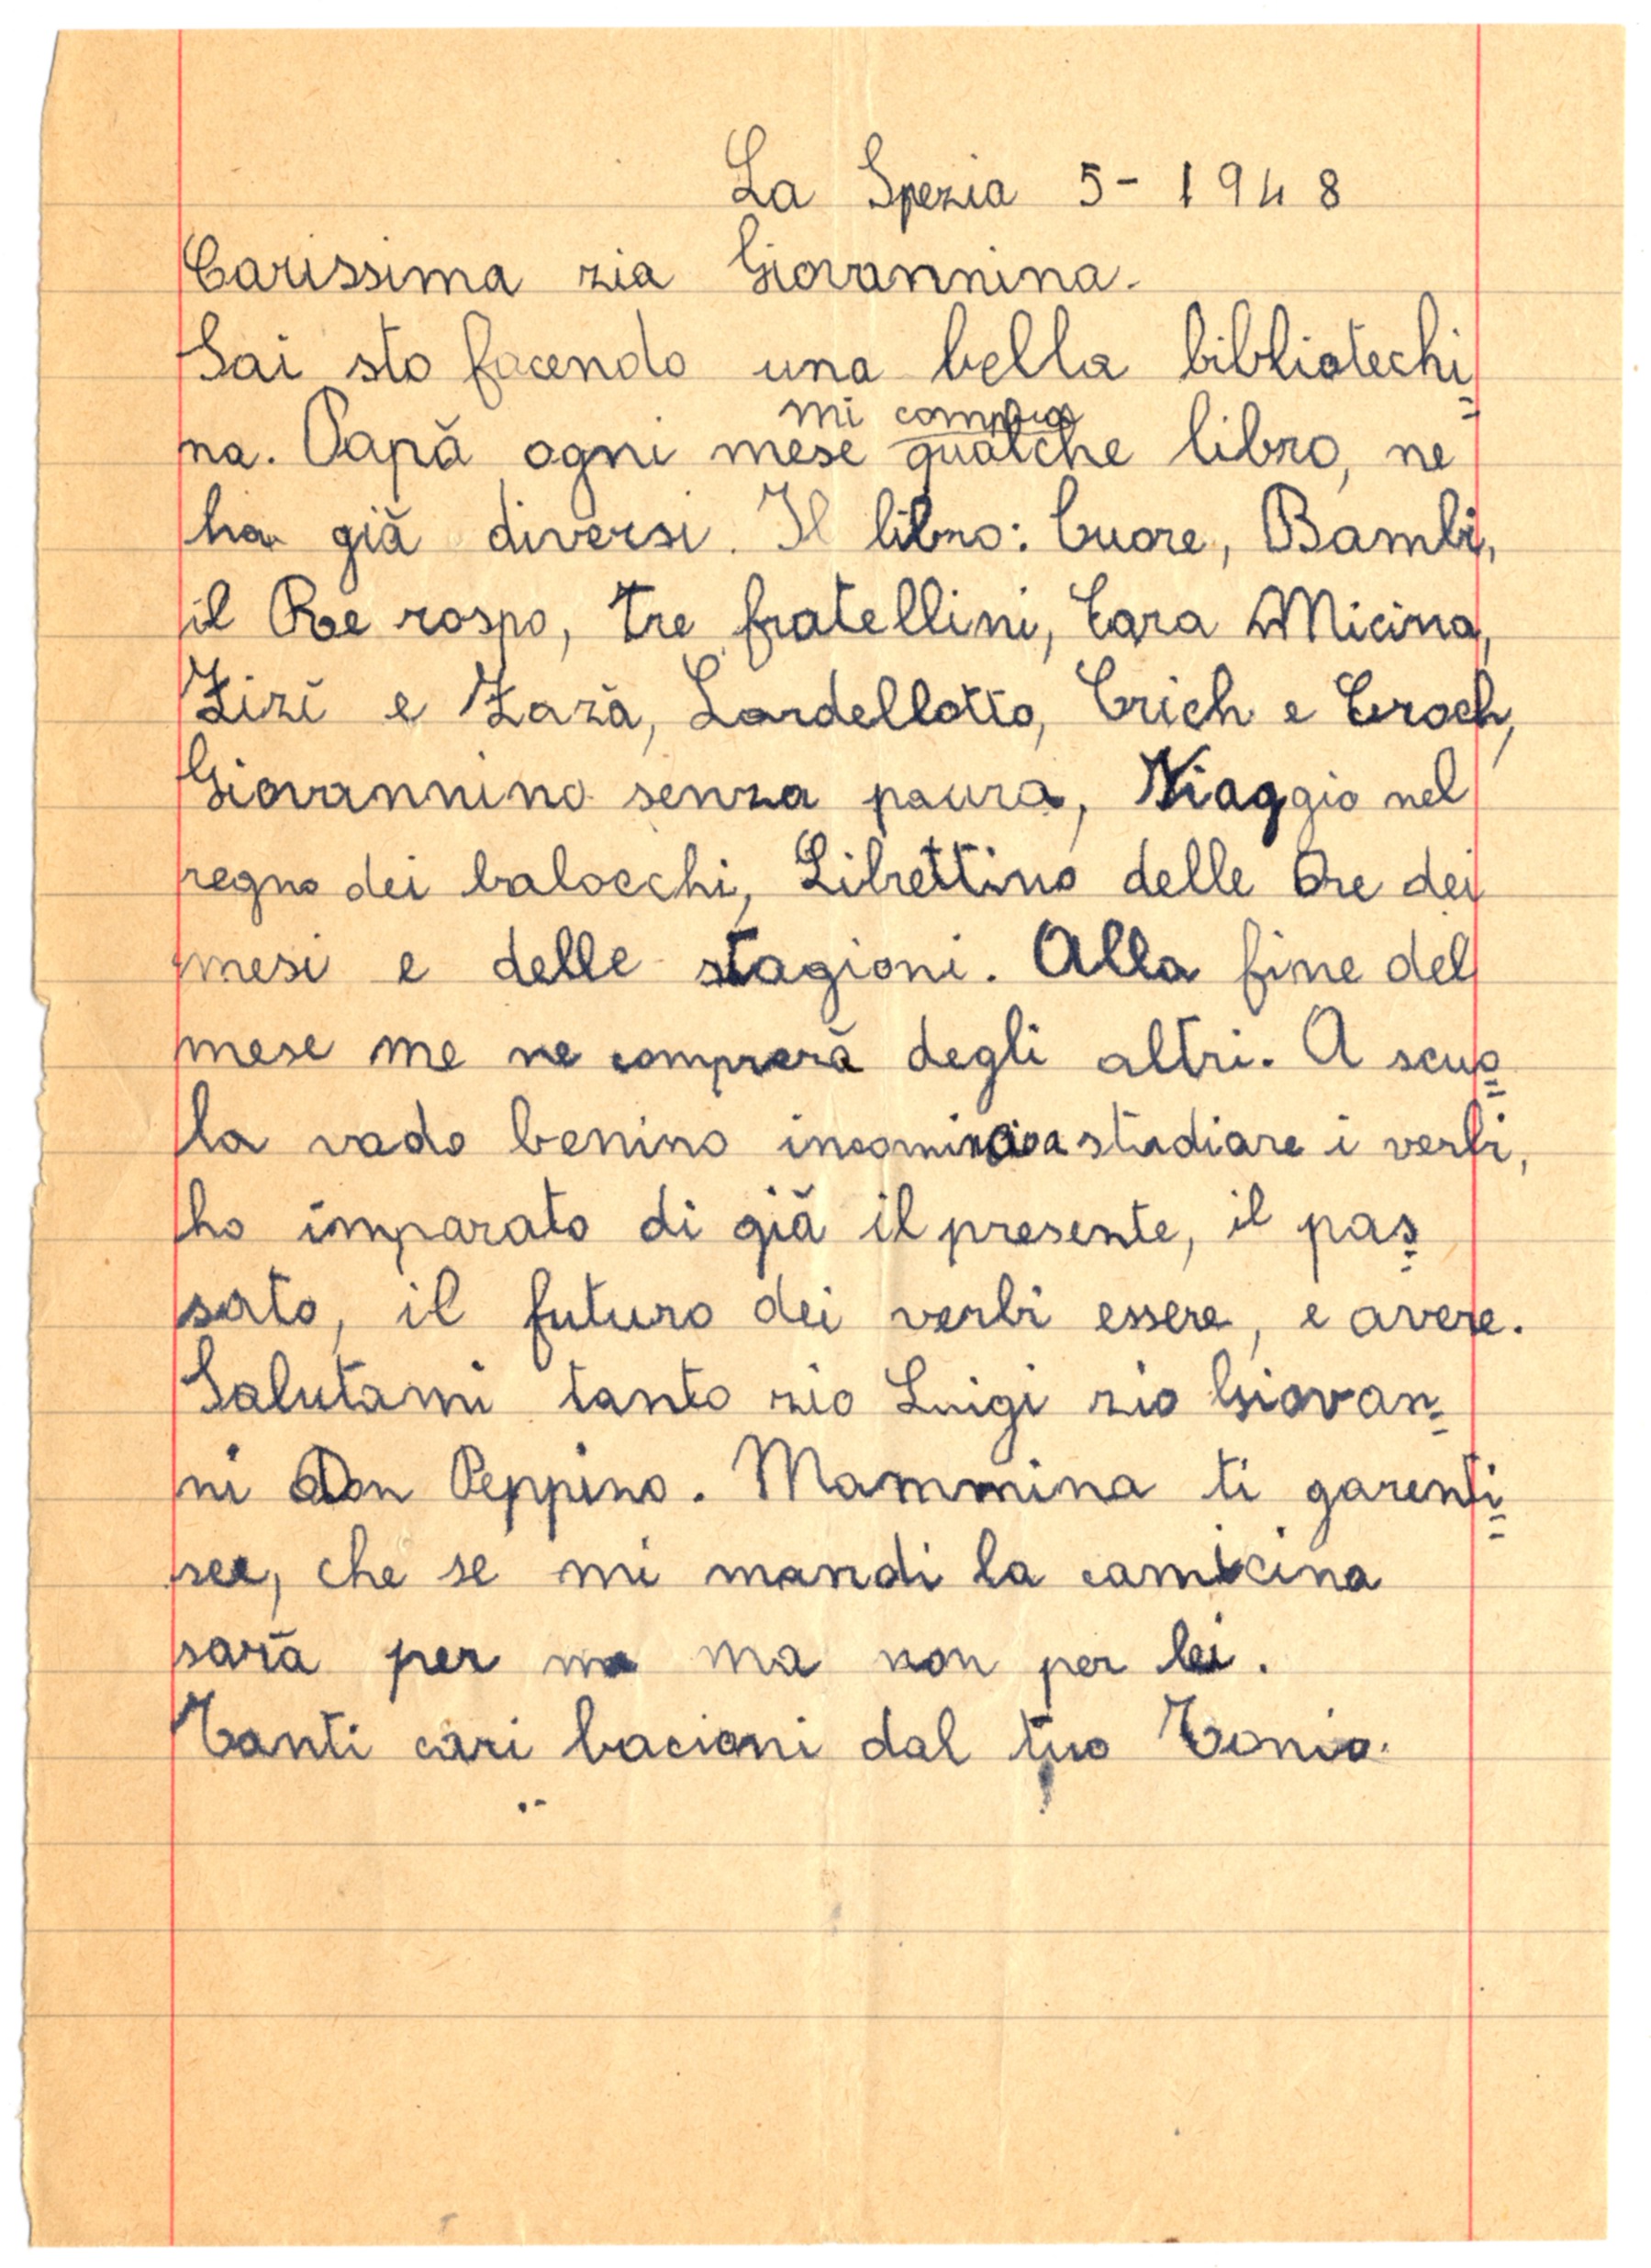 La Spezia 5-1948
Carissima zia Giovannina.
Sai sto facendo una bella bibliotechi=
mi compra
na. Papà ogni mese qualche libro, ne
ha già diversi. Il libro: Cuore, Bambi,
il Re rospo, tre fratellini, Cara Micina,
Zizì e Zazà, Lardellotto, Crich e Croch,
Giovannino senza paura, Viaggio nel
regno dei balocchi, Librettino delle Ore dei
mesi e delle stagioni. Alla fine del
mese me ne comprerà degli altri. A scuo=
la vado benino incomincio a studiare i verbi,
ho imparato di già il presente, il pas=
sato, il futuro dei verbi essere, e avere.
Salutami tanto zio Luigi zio Giovan=
ni Don Peppino. Mammina ti garenti=
sce, che se mi mandi la camicina
sarà per me ma non per lei.
Tanti cari bacioni dal tuo Tonio.